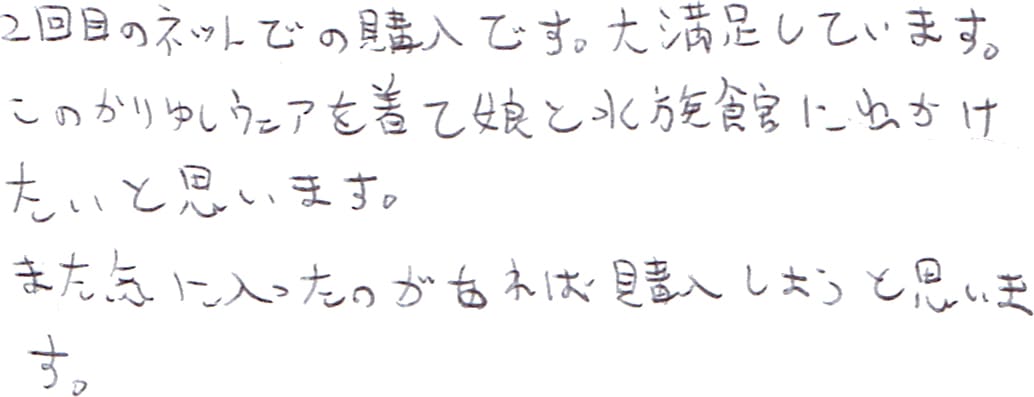 2回目のネットでの購入です。大満足しています。
このかりゆしウェアを着て娘と水族館に出かけ
たいと思います。
また気に入ったのがあれば購入しようと思いま
す。